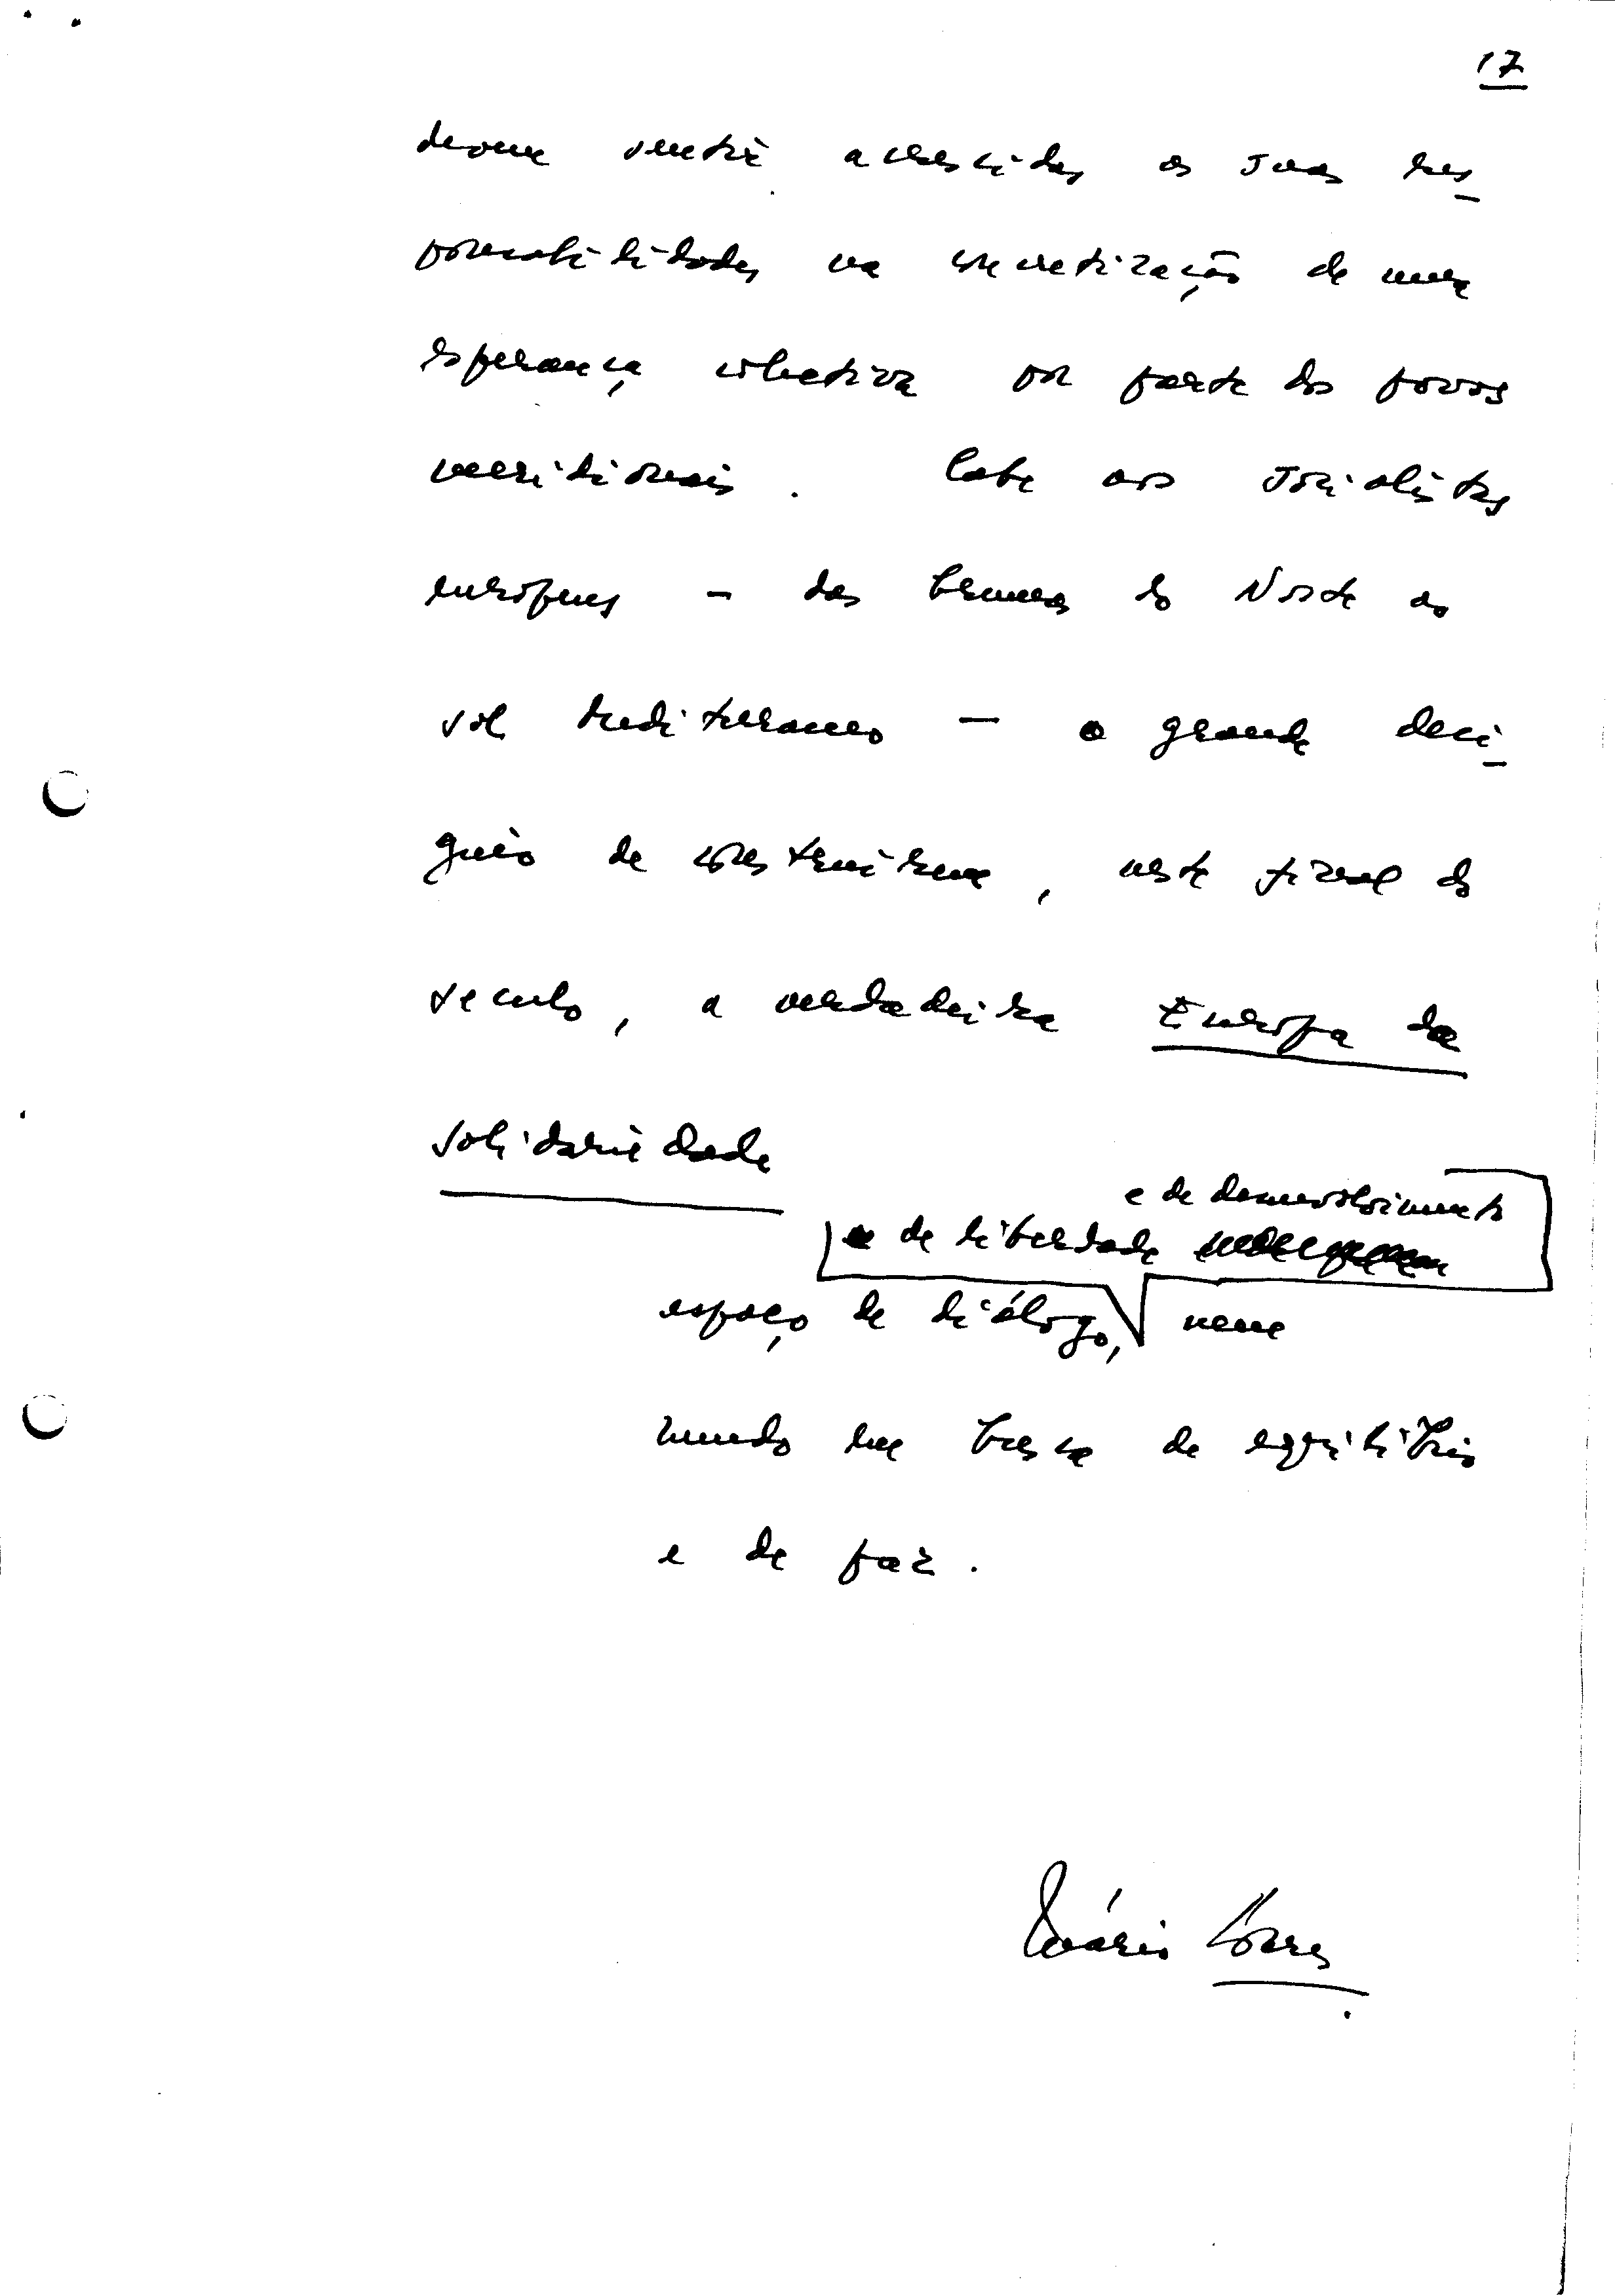 17
devem sentir acrescidas as suas res
ponsabilidades na concretização de uma
esperança colectiva por parte dos povos
meridionais. Cabe aos socialistas
europeus – das brumas do Norte ao
sol mediterraneo – o grande desi
gnio de construirem, neste final do
seculo, a verdadeira Europa da
solidariedade
e de desenvolvimento
de liberdade
espaço de diálogo, num
mundo em busca de equilíbrio
e de paz.
Mário Soares